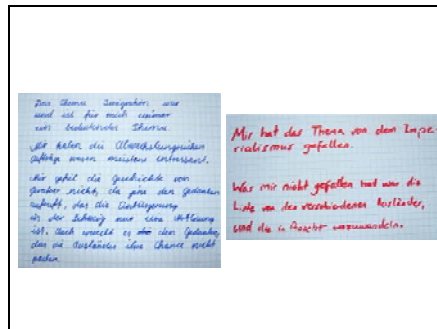 Das Thema Immigration war
und ist für mich immer
ein bedeutendes Thema.
Mir haben die Abwechslungsreichen
Aufträge immer meistens
Mir gefiel die Geschichte von
nicht, da sie den Gedanken
aufruft, das die Einbürgerung
in der Schweiz nur eine
ist. Auch erweckt es den Gedanken,
das die Ausländer ihre Chance nicht
packen.
Mir hat das Thema von dem Impe-
rialismus gefallen.
Was mir nicht gefallen hat war die
Liste von den verschiedenen Ausländer,
und die in Pracht umzuwandeln.